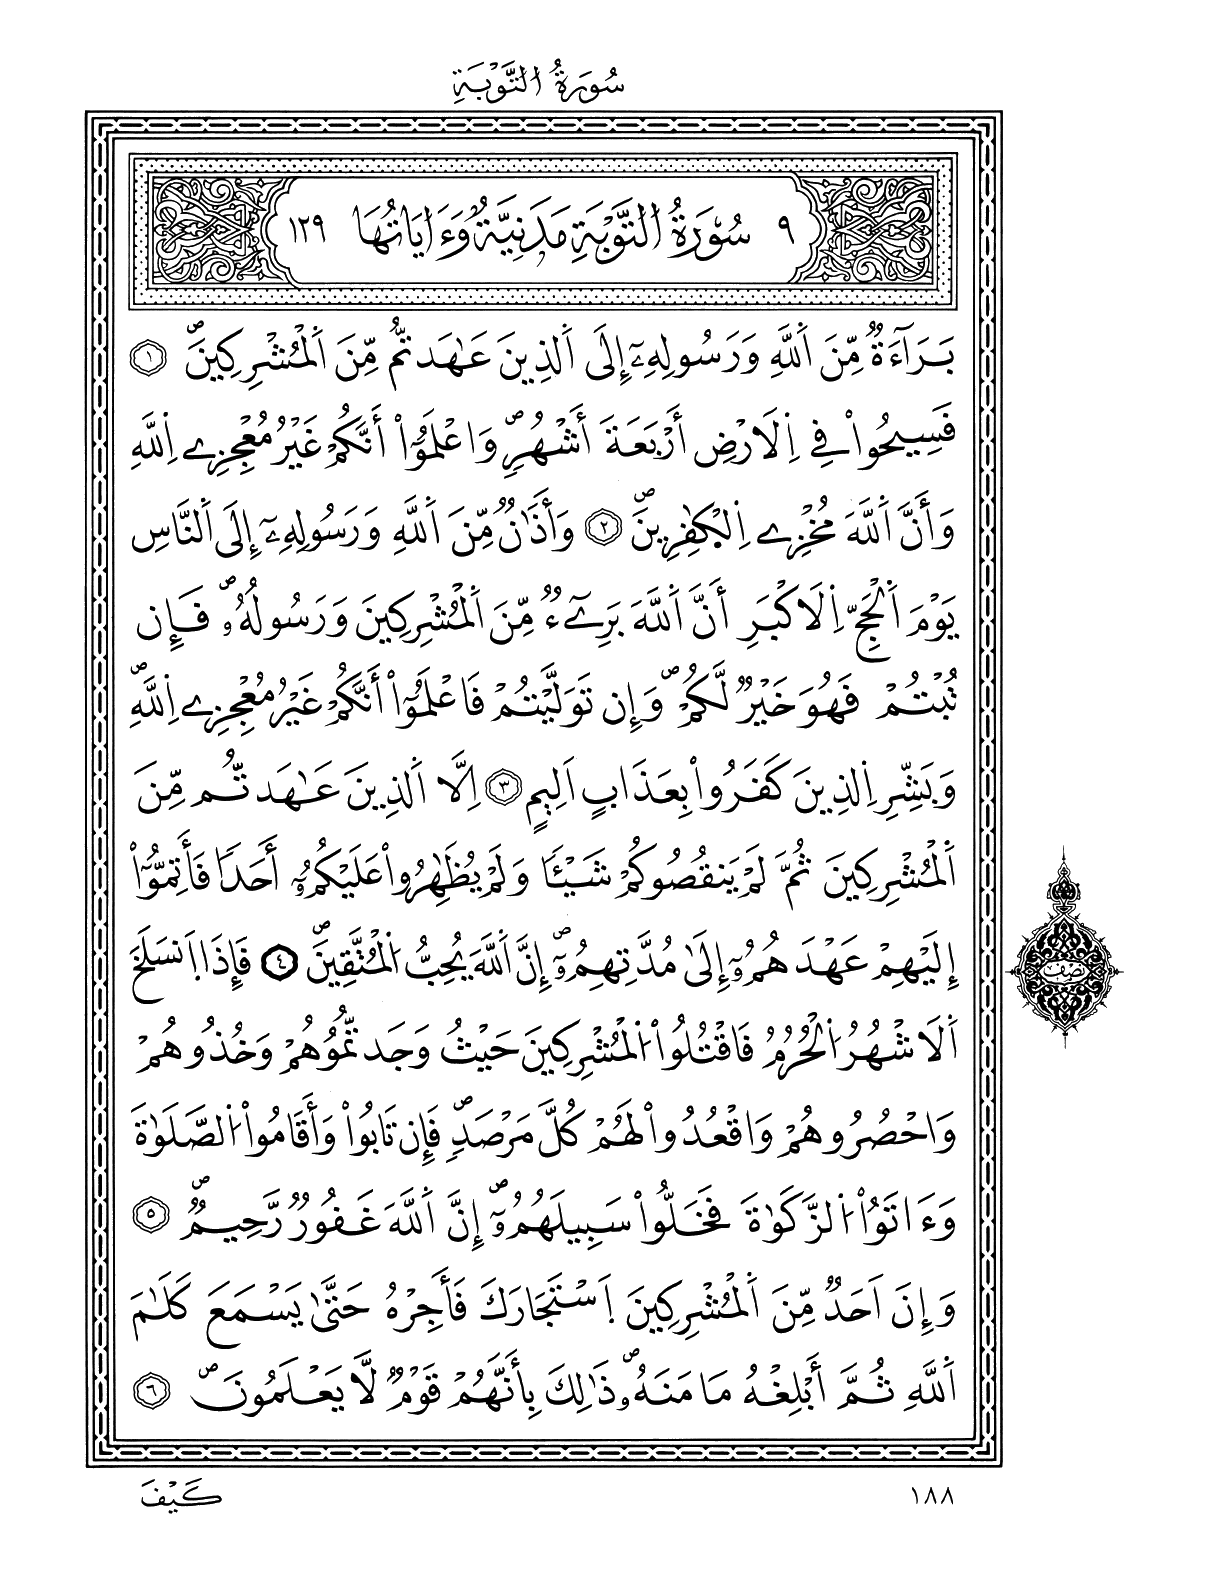 سُورَةُ التَّوْبَةِ
٩ سُورَةُ التَّوْبَةِ مَدَنِيَّةٌ وَءَايَاتُهَا ١٢٩
بَرَآءَةٌ مِّنَ اَ۬للَّهِ وَرَسُولِهِۦٓ إِلَى اَ۬لذِينَ عَٰهَدتُّم مِّنَ اَ۬لْمُشْرِكِينَۖ ١
فَسِيحُواْ فِے اِ۬لَارْضِ أَرْبَعَةَ أَشْهُرٖۖ وَاعْلَمُوٓاْ أَنَّكُمْ غَيْرُ مُعْجِزِے اِ۬للَّهِ
وَأَنَّ اَ۬للَّهَ مُخْزِے اِ۬لْكٰ۪فِرِينَۖ ٢ وَأَذَٰنٞ مِّنَ اَ۬للَّهِ وَرَسُولِهِۦٓ إِلَى اَ۬لنَّاسِ
يَوْمَ اَ۬لْحَجِّ اِ۬لَاكْبَرِ أَنَّ اَ۬للَّهَ بَرِےٓءٞ مِّنَ اَ۬لْمُشْرِكِينَ وَرَسُولُهُۥۖ فَإِن
تُبْتُمْ فَهُوَ خَيْرٞ لَّكُمْۖ وَإِن تَوَلَّيْتُمْ فَاعْلَمُوٓاْ أَنَّكُمْ غَيْرُ مُعْجِزِے اِ۬للَّهِۖ
وَبَشِّرِ اِ۬لذِينَ كَفَرُواْ بِعَذَابٍ اَلِيمٍ ٣ اِلَّا اَ۬لذِينَ عَٰهَدتُّم مِّنَ
اَ۬لْمُشْرِكِينَ ثُمَّ لَمْ يَنقُصُوكُمْ شَيْـٔاٗ وَلَمْ يُظَٰهِرُواْ عَلَيْكُمُۥٓ أَحَداٗ فَأَتِمُّوٓاْ
إِلَيْهِمْ عَهْدَهُمُۥٓ إِلَىٰ مُدَّتِهِمُۥٓۖ إِنَّ اَ۬للَّهَ يُحِبُّ اُ۬لْمُتَّقِينَۖ ٤ فَإِذَا اَ۪نسَلَخَ
اَ۬لَاشْهُرُ اُ۬لْحُرُمُ فَاقْتُلُواْ اُ۬لْمُشْرِكِينَ حَيْثُ وَجَدتُّمُوهُمْ وَخُذُوهُمْ
وَاحْصُرُوهُمْ وَاقْعُدُواْ لَهُمْ كُلَّ مَرْصَدٖۖ فَإِن تَابُواْ وَأَقَامُواْ اُ۬لصَّلَوٰةَ
وَءَاتَوُاْ اُ۬لزَّكَوٰةَ فَخَلُّواْ سَبِيلَهُمُۥٓۖ إِنَّ اَ۬للَّهَ غَفُورٞ رَّحِيمٞۖ ٥
وَإِنَ اَحَدٞ مِّنَ اَ۬لْمُشْرِكِينَ اَ۪سْتَجَارَكَ فَأَجِرْهُ حَتَّىٰ يَسْمَعَ كَلَٰمَ
اَ۬للَّهِ ثُمَّ أَبْلِغْهُ مَامَنَهُۥۖ ذَٰلِكَ بِأَنَّهُمْ قَوْمٞ لَّا يَعْلَمُونَۖ ٦
نصف
١٨٨
كَيْفَ